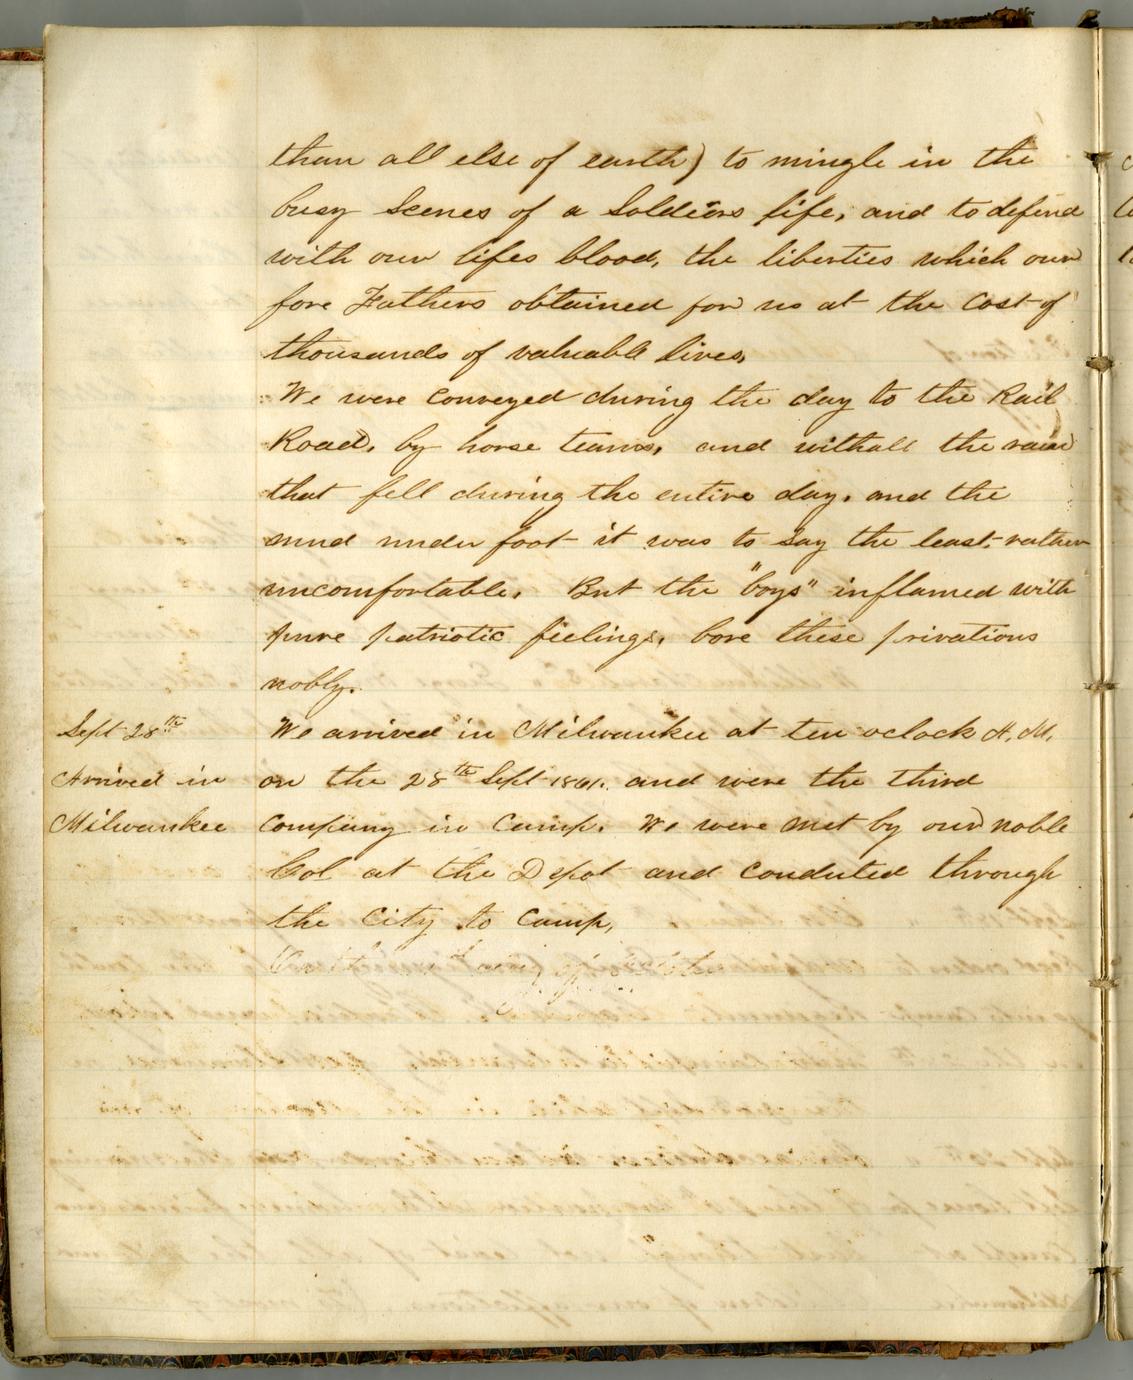 than all else of earth) to mingle in the
busy Scenes of a Soldiers life, and to defend
with our lifes blood, the liberties which our
fore Fathers obtained for us at the Cost of
thousands of valuable lives,
We were Conveyed during the day to the Rail
Road, by horse teams, and withall the rain
that fell during the entire day, and the
mud under foot it was to Say the least, rather
uncomfortable. But the "boys" inflamed with
pure patriotic feelings, bore these privations
nobly.
Sept 28th We arrived in Milwaukee at ten oclock A.M.
Arrived in on the 28th Sept 1861. and were the third
Milwaukee Company in Camp. We were met by our noble
Col at the Depot and Conducted through
the City to Camp,